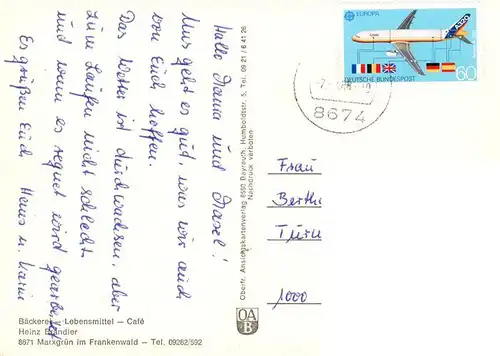 Hallo Mama und Marsel!
Uns geht es gut, was wir auch
von Euch hoffen.
Das Wetter ist durchwachsen, aber
zum Laufen nicht schlecht
und wenn es regnet wird gearbeitet
Es grüßen Euch Heinz u. Karin
Bäckerei – Lebensmittel – Café
Heinz Brandler
8671 Marxgrün im Frankenwald – Tel. 09282/592
Oberfr. Ansichtskartenverlag 8580 Bayreuth, Humboldtstr. 5, Tel. 09 21 / 6 41 26
Nachdruck verboten
OA
B
EUROPA
A320
DEUTSCHE BUNDESPOST
60
8674
Frau
Berthi
Turn
1000